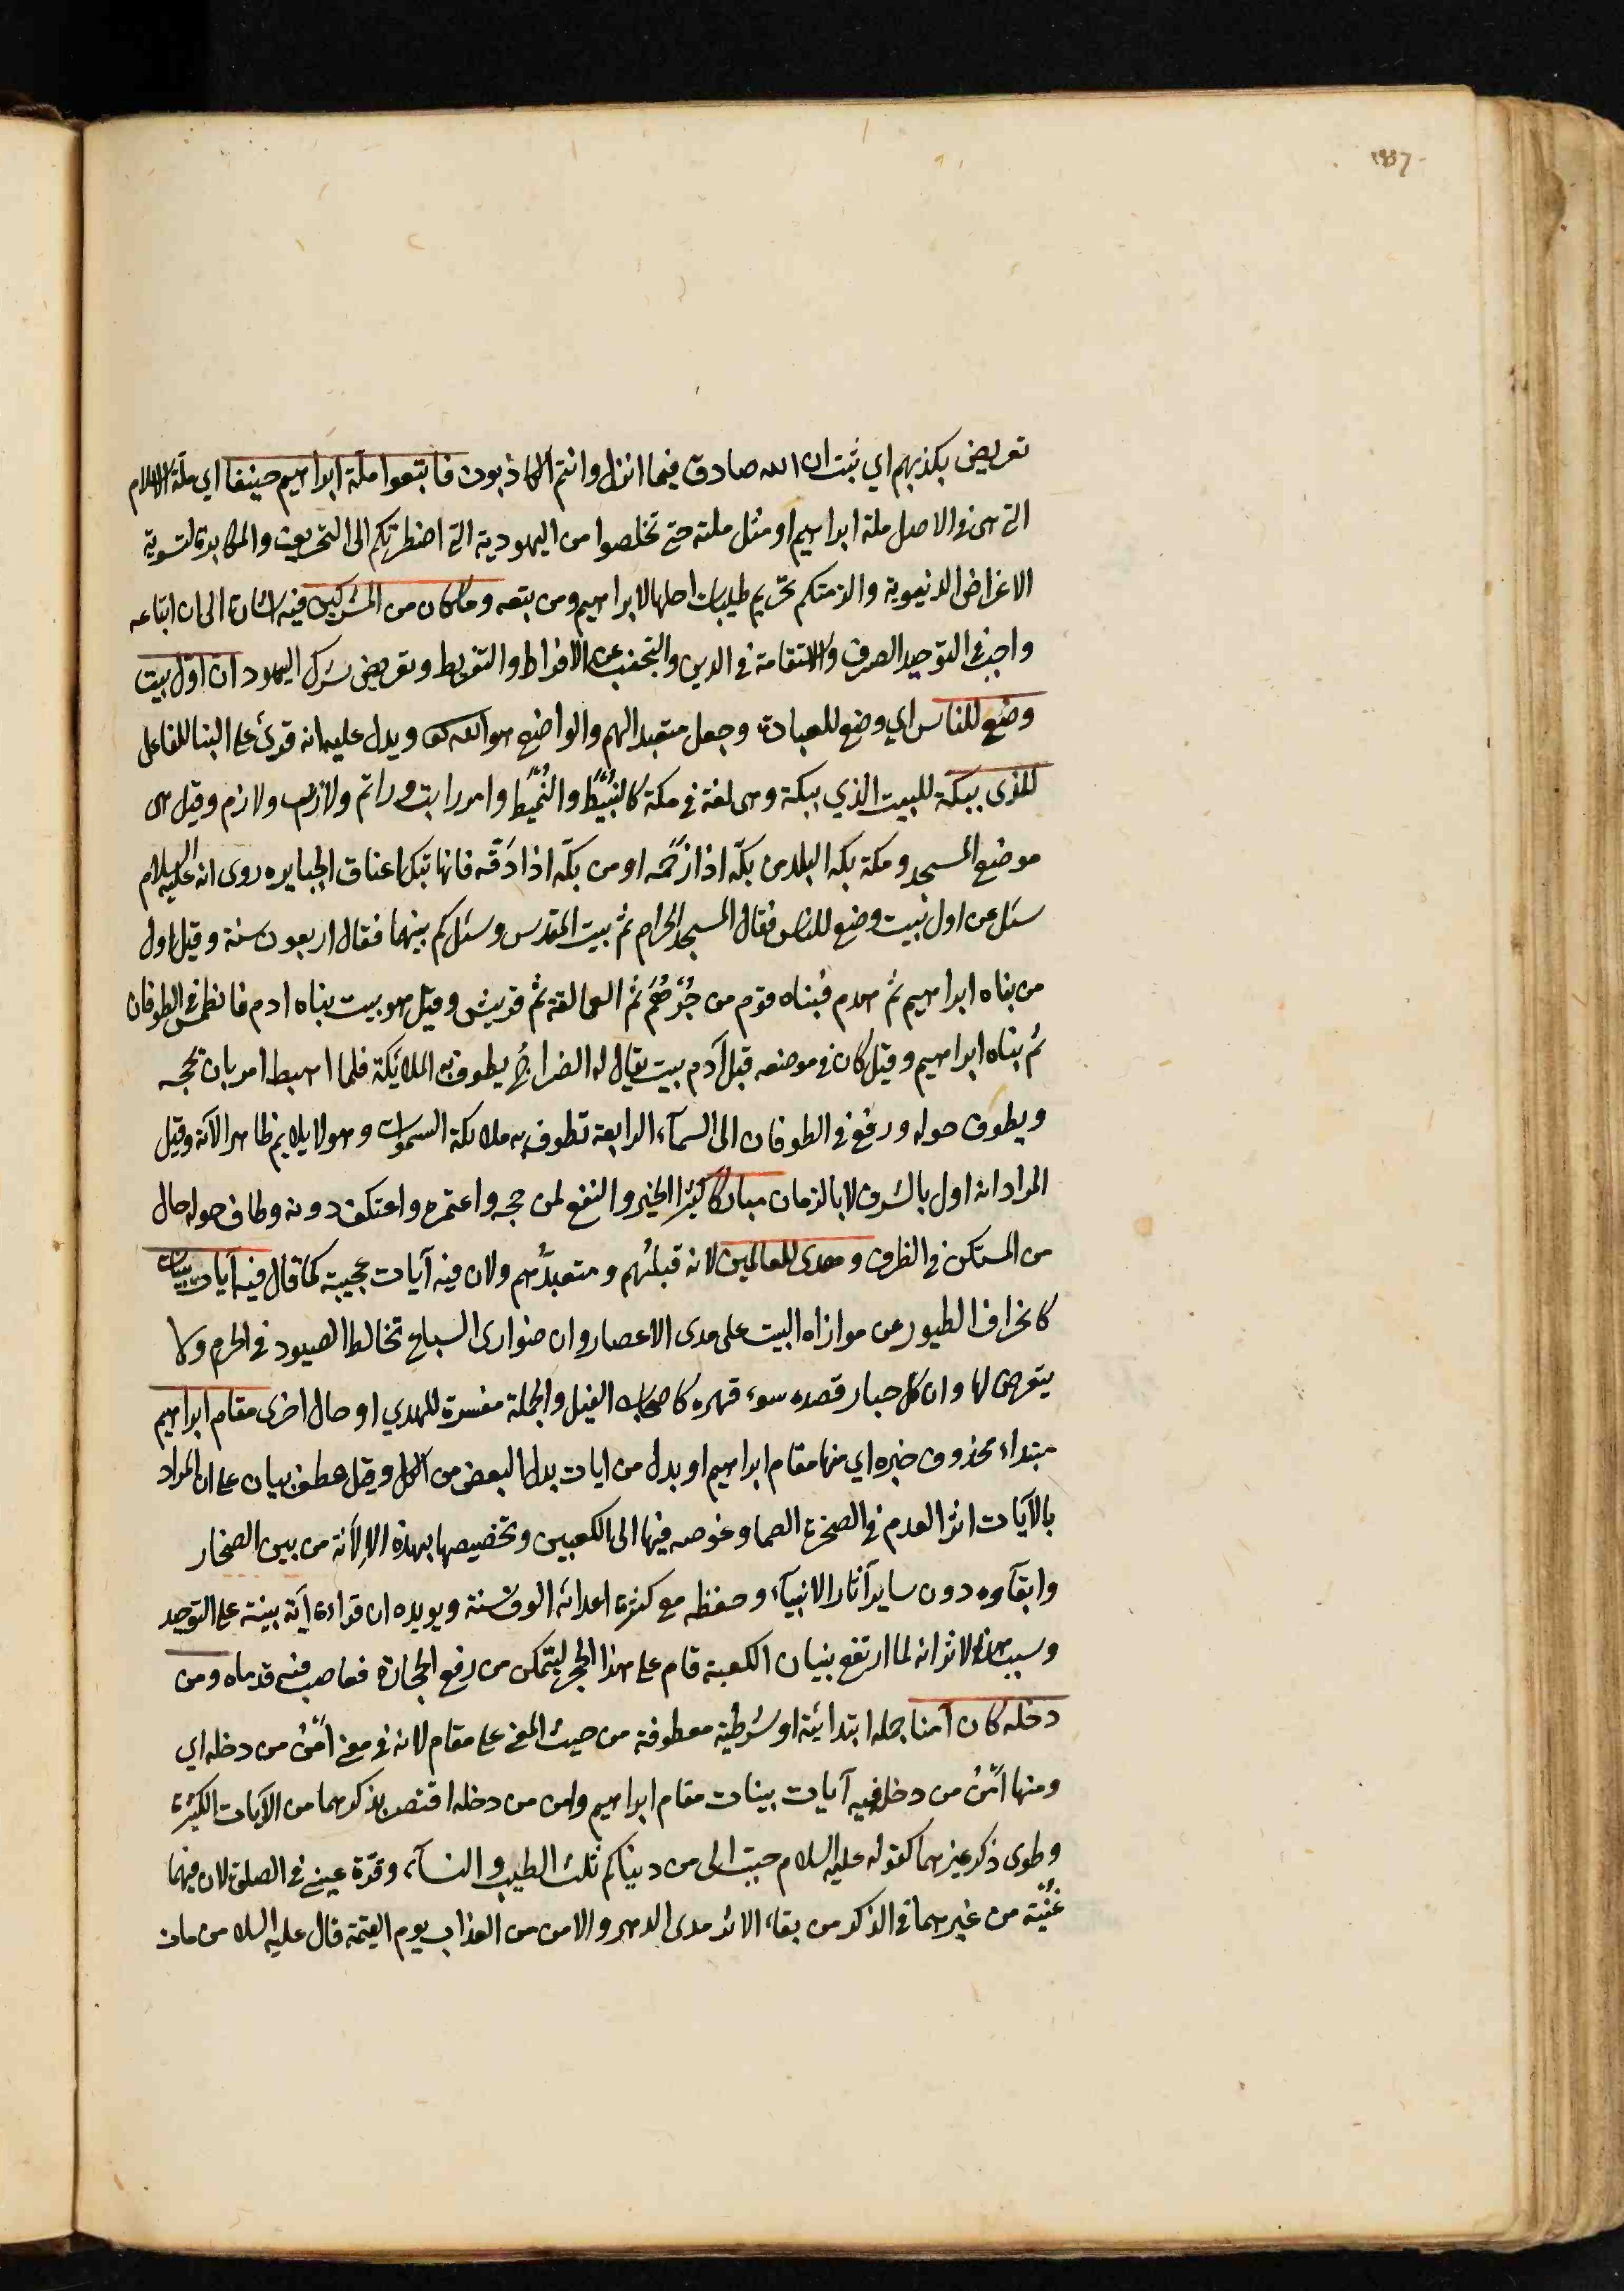 تعريض بكذبهم اي ثبت ان الله صادق فيما انزل وانتم الكاذبون فاتبعوا ملة ابراهيم حنيفا اي ملة الاسلام
التي هي في الاصل ملة ابراهيم او مثل ملته حتي تخلصوا من اليهودية التي اضطرتكم الى التحريف والمكابرة لتسوية
الاغراض الدنيوية والزمتكم تحريم طيبات احلها لابراهيم ومن تبعه وما كان من المشركين فيه اشارة الى ان اتباعه
واجب في التوحيد الصرف والاستقامة في الدين والتجنب عن الافراط والتفريط وتعريض بشرك اليهود ان اول بيت
وضع للناس اي وضع للعبادة وجعل متعبدا لهم والواضع هو الله تعا ويدل عليه انه قرئ على البنا للفاعل
للذى ببكة للبيت الذي ببكة وهى لغة في مكة كالنبيط والنميط وامر راتب وراتم ولازب ولازم وقيل هى
موضع المسجد ومكة بكه البلد من بكه اذا زحمه او من بكه اذا دقه فانها تبك اعناق الجبابره روى انه عليه السلام
سئل عن اول بيت وضع للناس فقال المسجد الحرام ثم بيت المقدس وسئل كم بينهما فقال اربعون سنة وقيل اول
من بناه ابراهيم ثم هدم فبناه قوم من جُرهُم ثم العمالقة ثم قريش وقيل هو بيت بناه ادم فانطمس في الطوفان
ثم بناه ابراهيم وقيل كان في موضعه قبل آدم بيت يقال له الضراح يطوف به الملائكة فلما اهبط امر بان يحجه
ويطوف حوله ورفع في الطوفان الى السمآء الرابعة تطوف به ملائكة السموات وهو لا يلايم ظاهر الآية وقيل
المراد انه اول بالشرف لا بالزمان مباركا كثير الخير والنفع لمن حجه واعتمره واعتكف دونه وطاف حوله حال
من المستكن في الظرف وهدى للعالمين لانه قبلتهم ومتعبدهم ولان فيه آيات عجيبة كما قال فيه آيات بينات
كانحراف الطيور عن موازاه البيت على مدى الاعصار وان ضوارى السباع تخالط الصيود في الحرم ولا
يتعرض لها وان كل جبار قصده بسوء قهره كاصحاب الفيل والجملة مفسرة للهدي او حال اخرى مقام ابراهيم
مبتداء محذوف خبره اي منها مقام ابراهيم او بدل من ايات بدل البعض من الكل وقيل عطف بيان على ان المراد
بالآيات اثر القدم في الصخرة الصما وغوصه فيها الى الكعبين وتخصيصها بهذه الالانة من بين الصخار
وابقآوه دون ساير آثار الانبيآء وحفظه مع كثرة اعدائه الوف سنة ويويده ان قراءة آية بينة على التوحيد
وسبب هذا الاثر انه لما ارتفع بنيان الكعبة قام على هذا الحجر ليتمكن من رفع الحجارة فغاصت فيه قدماه ومن
دخله كان آمنا جمله ابتدائية او شرطية معطوفة من حيث المعنى على مقام لانه في معنى امن من دخله اي
ومنها امن من دخل فيه آيات بينات مقام ابراهيم وامن من دخله اقتصر بذكرهما من الآيات الكثيرة
وطوى ذكر غيرهما كقوله عليه السلام حبب الى من دنياكم ثلث الطيب والنسآء وقرة عيني في الصلوة لان فيهما
غنية من غيرهما في الذكر من بقاء الاثر مدى الدهر والامن من العذاب يوم القيمة قال عليه السلا من مات